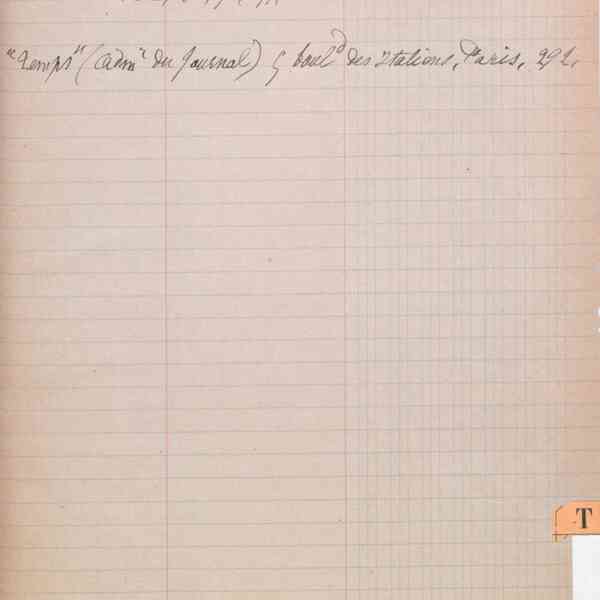 "Temps" (adm^on du Journal) 5 boul^d des Italiens, Paris, 292.
T